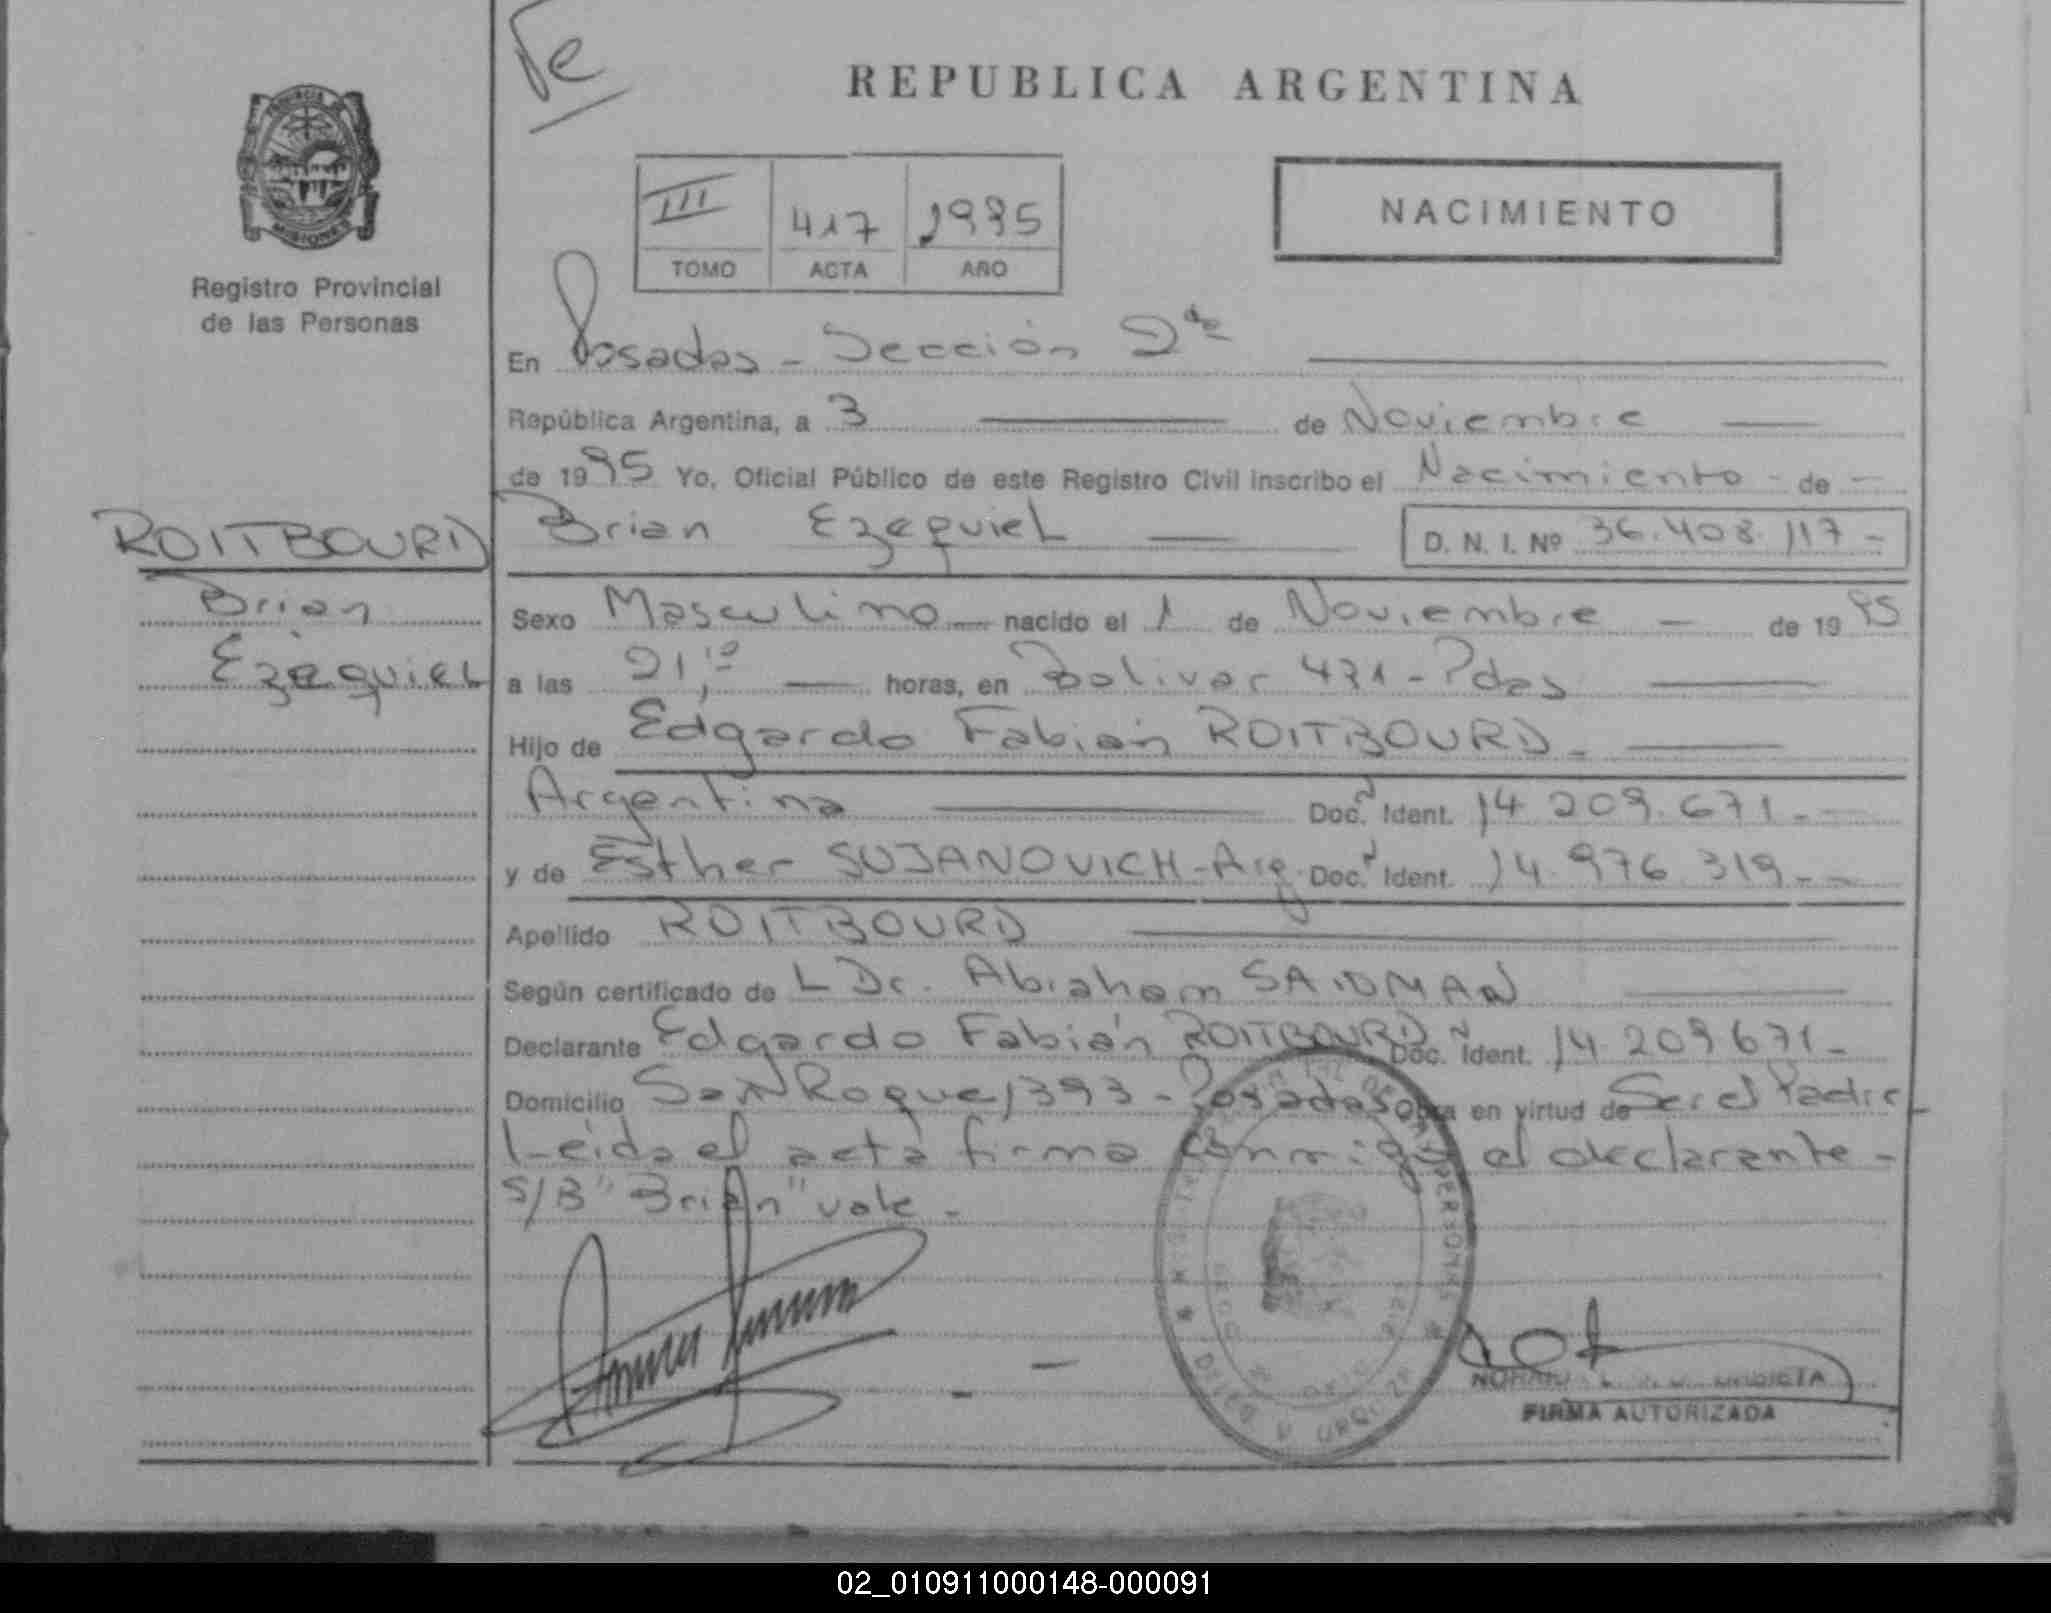 Te
REPUBLICA ARGENTINA
III 417 1995
TOMO ACTA AÑO
NACIMIENTO
MISIONES
Registro Provincial
de las Personas
En Posadas - Sección 2da
República Argentina, a 3 de Noviembre
de 1995 Yo, Oficial Público de este Registro Civil inscribo el Nacimiento - de -
ROITBOURD
Brian
Ezequiel
Brian Ezequiel D. N. I. Nº 36.408.117 -
Sexo Masculino nacido el 1 de Noviembre - de 1995
a las 21,10 horas, en Bolivar 471 - Pdas
Hijo de Edgardo Fabián ROITBOURD -
Argentina Doc. Ident. 14 209.671 -
y de Esther SUJANOVICH - Arg. Doc. Ident. 14.976.319 - -
Apellido ROITBOURD
Según certificado de L Dr. Abraham SAIDMAN
Declarante Edgardo Fabián ROITBOURD Doc. Ident. 14 209 671 -
Domicilio San Roque 1393 - Posadas Obra en virtud de Ser el Padre
Leida el acta firma conmigo el declarante -
S/B "Brian" vale -
FIRMA AUTORIZADA
02_010911000148-000091